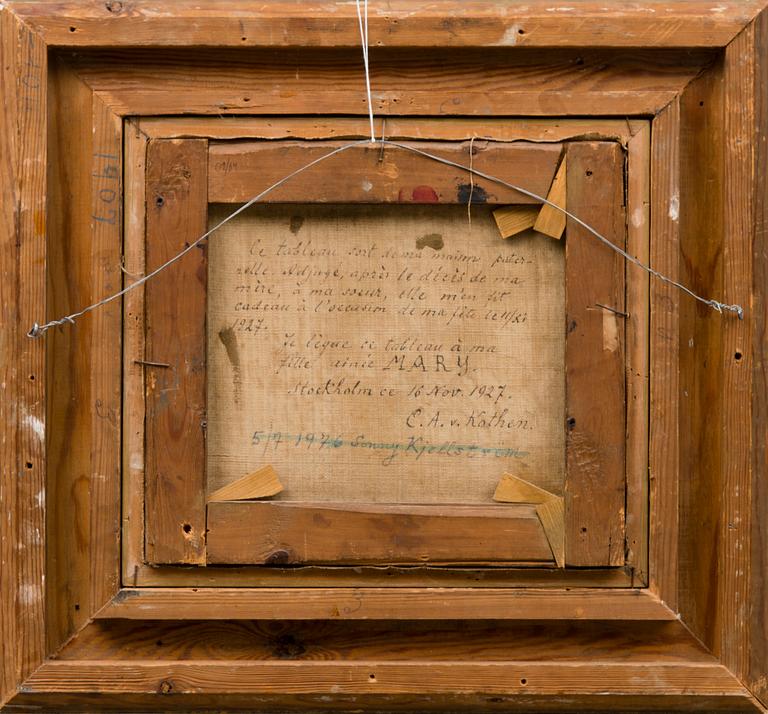 Ce tableau sort de ma maison pater-
nelle. Adjugé, après le décès de ma
mère, à ma soeur, elle m'en fit
cadeau à l'occasion de ma fête le 11/XI
1927.
Je lègue ce tableau à ma
fille ainée MARY.
Stockholm ce 16 Nov. 1927.
C. A. v. Kothen.
5/7 1976 Sonny Kjellström
1907